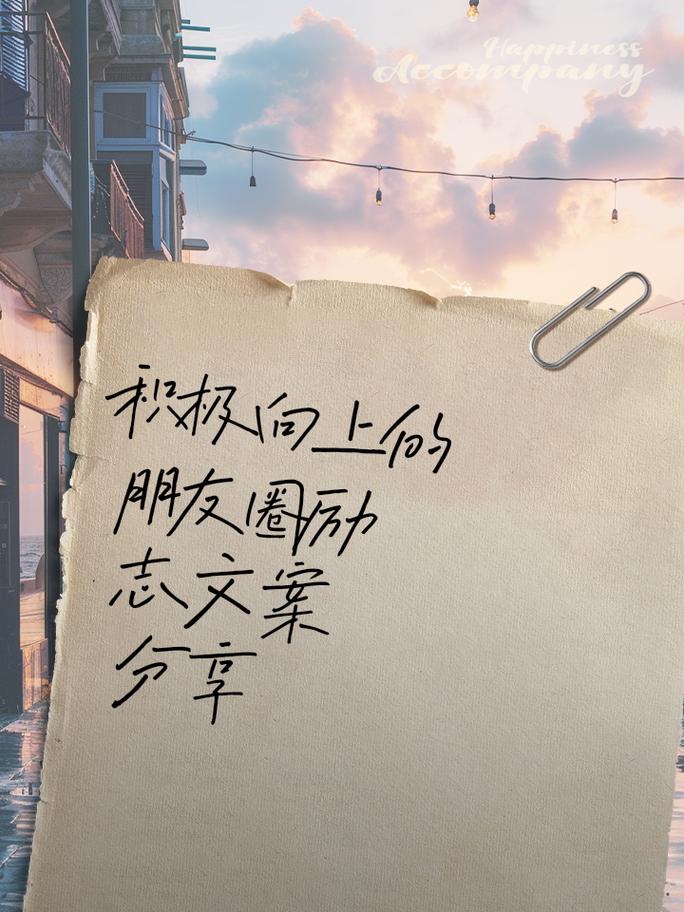 Happiness
Accompany
积极向上的
朋友圈励
志文案
分享